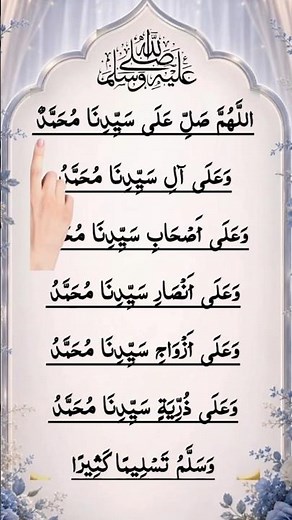 صلى الله عليه وسلم
اللَّهُمَّ صَلِّ عَلَى سَيِّدِنَا مُحَمَّدٌ
وَعَلَى آلِ سَيِّدِنَا مُحَمَّدُ
وَعَلَى اَصْحَابِ سَيِّدِنَا
وَعَلَى اَنْصَارِ سَيِّدِنَا مُحَمَّدُ
وَعَلَى اَزْوَاجِ سَيِّدِنَا مُحَمَّدُ
وَعَلَى ذُرِّيَةِ سَيِّدِنَا مُحَمَّدُ
وَسَلَّمُ تَسْلِيمًا كَثِيرًا